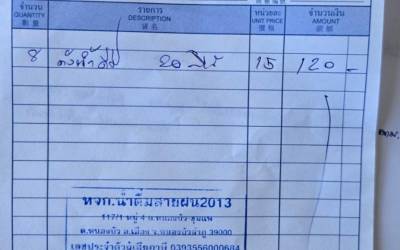 จำนวน รายการ หน่วยละ จำนวนเงิน
QUANTITY DESCRIPTION UNIT PRICE AMOUNT
數量 貨名 價格 銀額
8 20 15 120 -
หจก.น้ำดื่มสายฝน2013
117/1 หมู่ 4 ถ.หนองบัว-ชุมแพ
ต.หนองบัว อ.เมือง จ.หนองบัวลำภู 39000
เลขประจำตัวผู้เสียภาษี 0393556000684